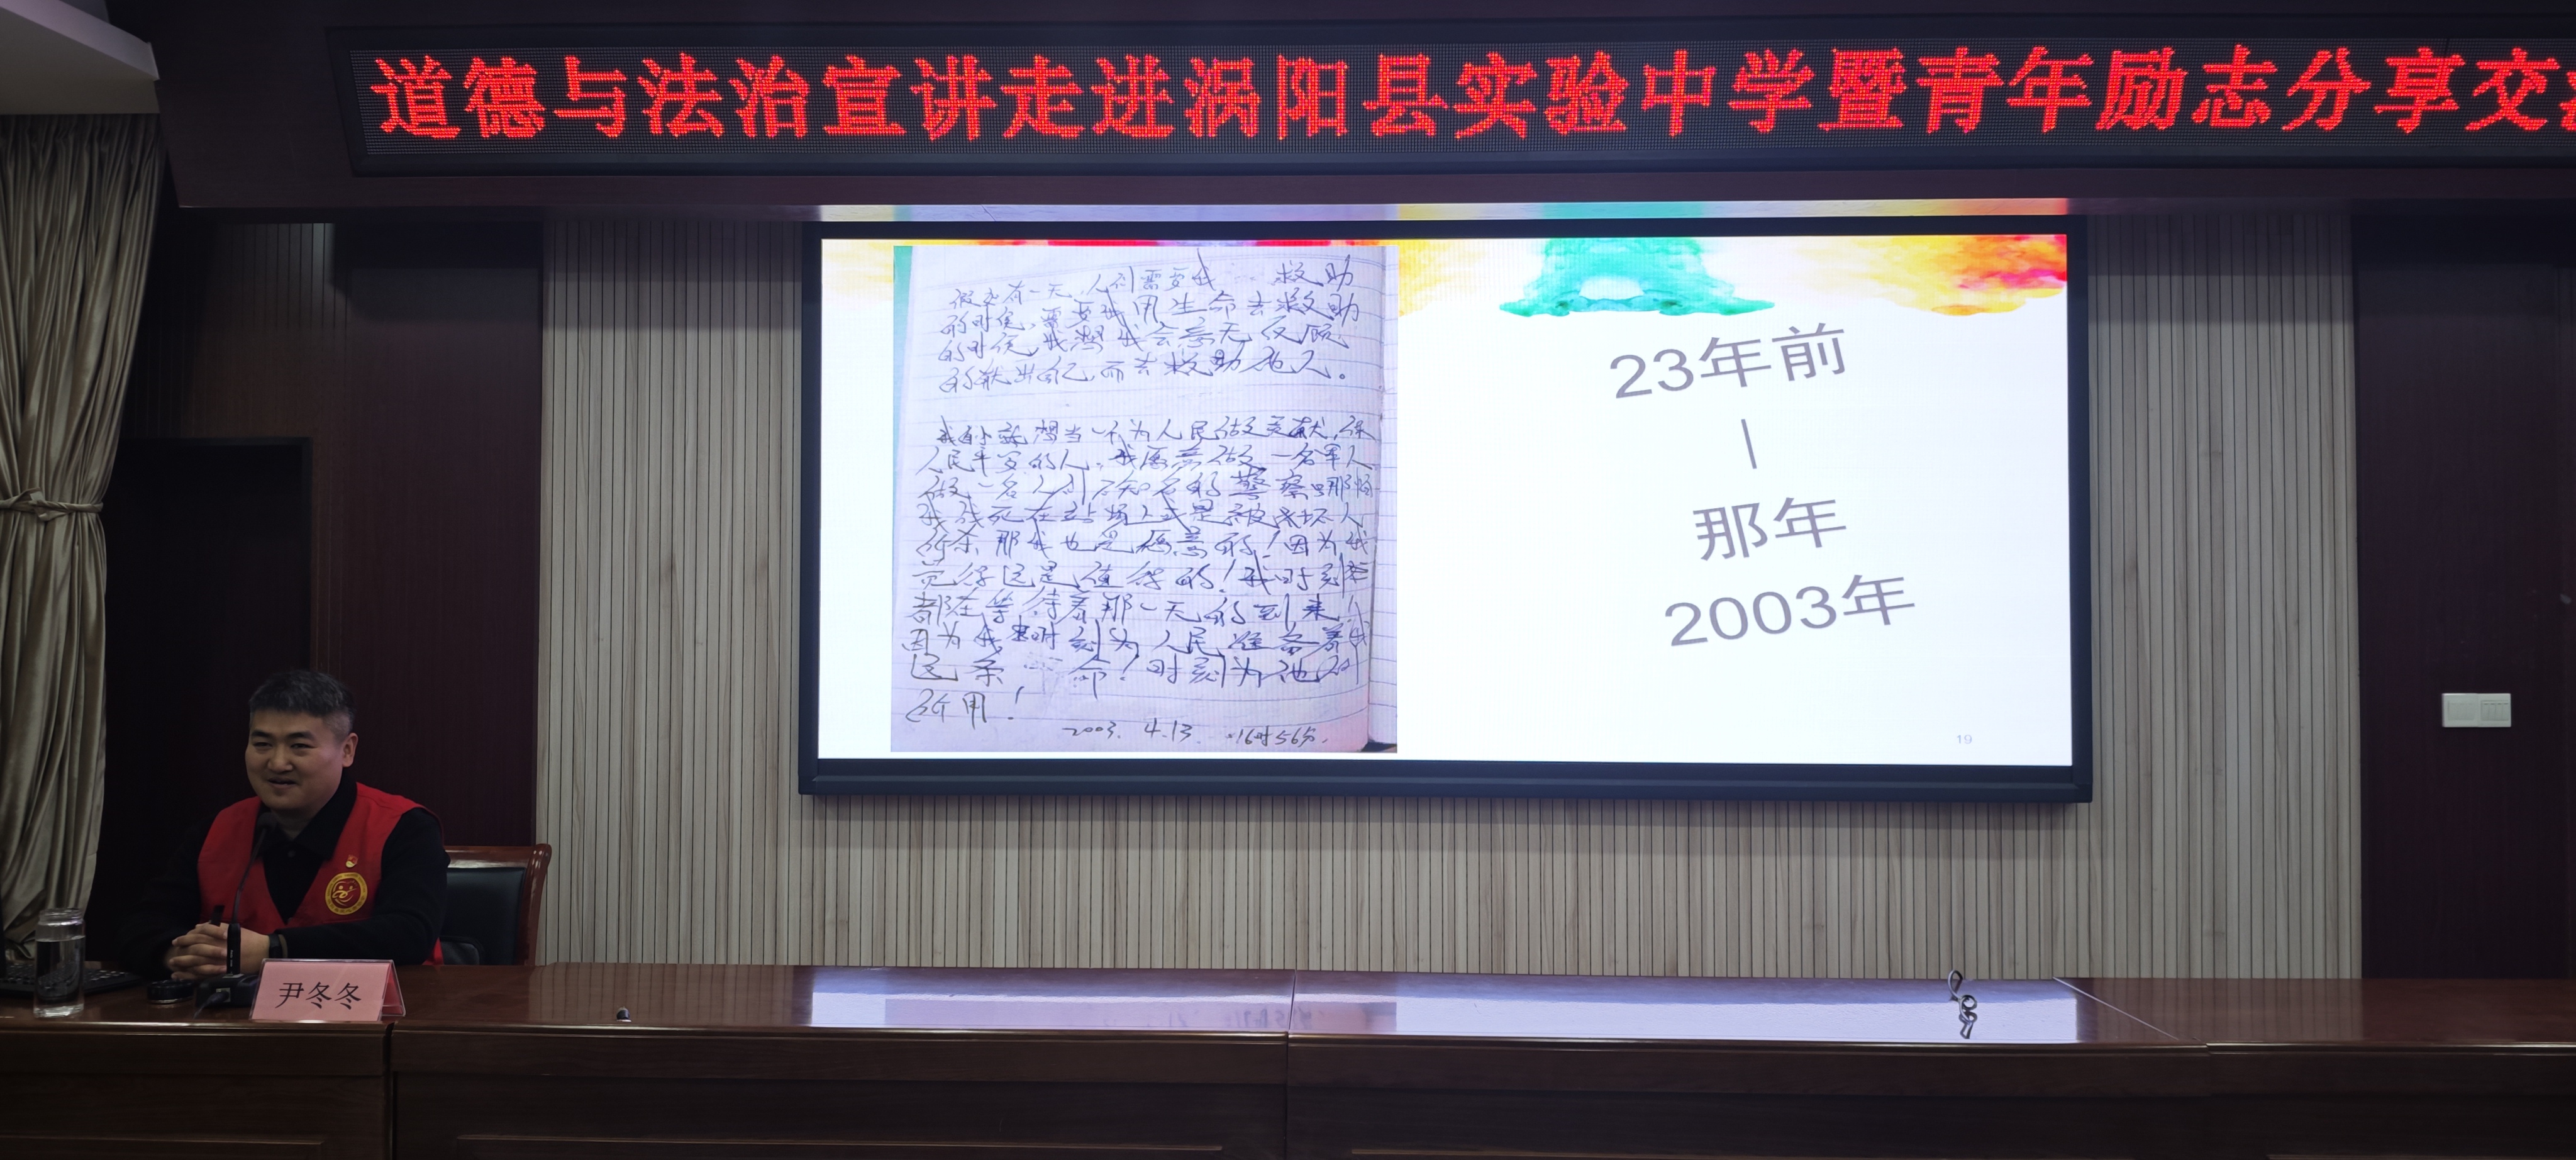 道德与法治宣讲走进涡阳县实验中学暨青年励志分享交
假如有一天,人们需要我 救助
的时候,需要我用生命去救助
的时候,我想我会义无反顾
的献出自己而去救助他人。
我自小就想当一个为人民做贡献,保
人民平安的人。我愿意做一名军人
做一名人们不知名的警察,哪怕
我战死在站场上或是被坏人
所杀那我也是愿意的!因为我
觉得这是值得的!我时刻
都在等待着那一天的到来!
因为我时刻为人民准备着
这条 命!时刻为他们
所用!
2003. 4.13. 16时56分.
23年前
|
那年
2003年
19
尹冬冬